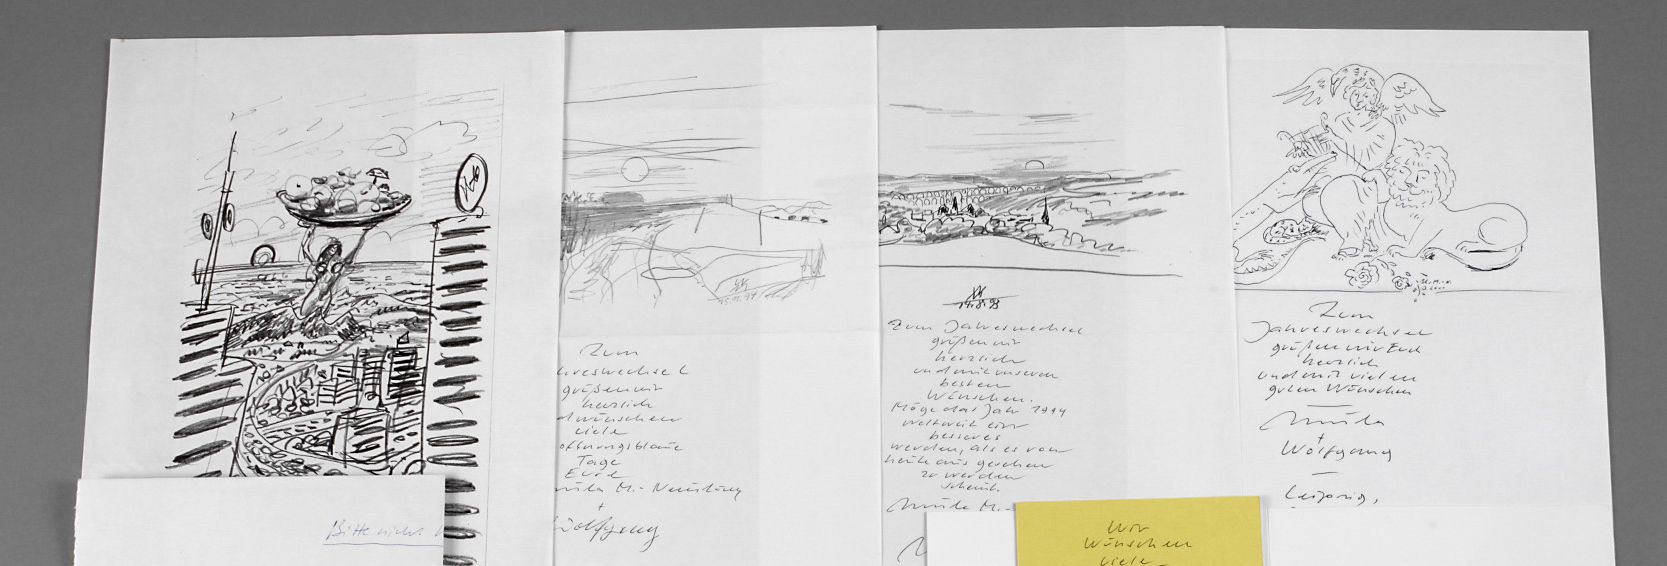 Bitte nicht
15.11.97
Zum
hreswechsel
grüßen wir
herzlich
d wünschen
viele
offnungsblaue
Tage
Eure
M.- Neustung
+
Wolfgang
Zum Jahreswechsel
grüßen wir
herzlich
und mit unseren
besten
Wünschen.
Möge das Jahr 1994
weltweit ein
besseres
werden, als es von
heute aus gesehen
zu werden
scheint.
M.-
Zum
Jahreswechsel
grüßen wir Euch
herzlich
und mit vielen
guten Wünschen
+
Wolfgang
Leipzig,
Wir
wünschen
viele